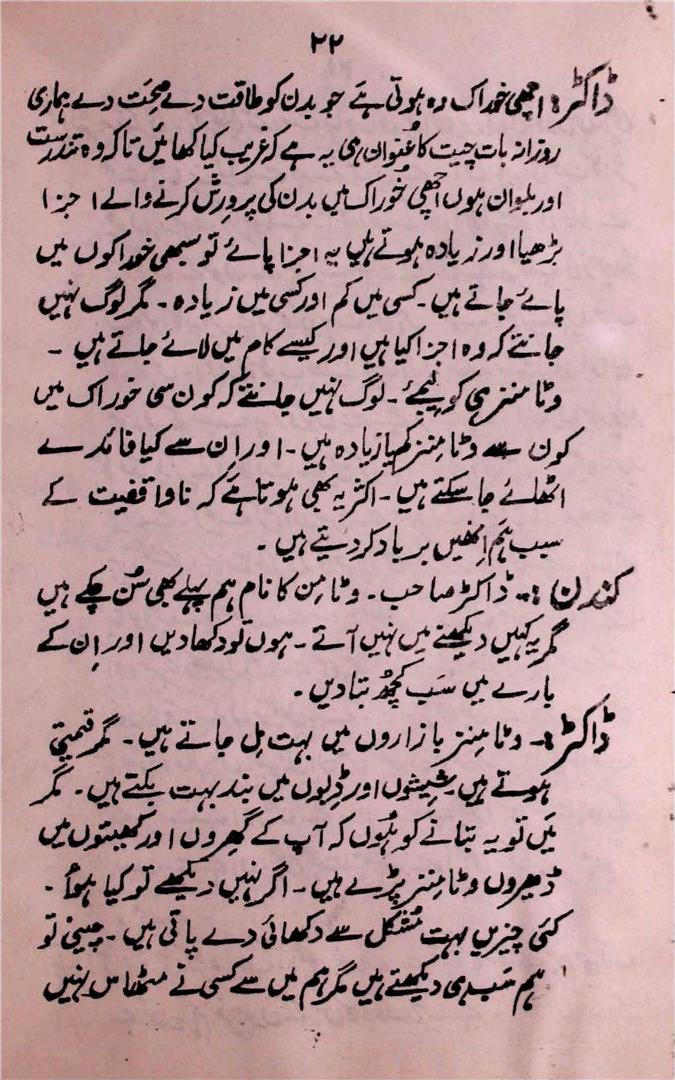 ۲۲
ڈاکٹر: اچھی خوراک وہ ہوتی ہے جو بدن کو طاقت دے صحت دے ہماری
روزانہ بات چیت کا عُنوان ہی یہ ہے کہ غریب کیا کھائیں تاکہ وہ تندرست
اور بلوان ہوں اچھی خوراک میں بدن کی پرورِش کرنے والے اجزا
بڑھیا اور زیادہ ہوتے ہیں یہ اجزا پائے تو سبھی خوراکوں میں
پائے جاتے ہیں۔ کسی میں کم اور کسی میں زیادہ۔ مگر لوگ نہیں
جانتے کہ وہ اجزا کیا ہیں اور کیسے کام میں لائے جاتے ہیں ۔
وٹامنز ہی کو لیجئے ۔ لوگ نہیں جانتے کہ کون سی خوراک میں
کون سے وٹامِنز زیادہ ہیں ۔ اور اِن سے کیا فائدے
اٹھائے جا سکتے ہیں ۔ اکثر یہ بھی ہوتا ہے کہ ناواقفیت کے
سبب ہم اِنھیں برباد کر دیتے ہیں ۔
کندن :۔ ڈاکٹر صاحب ۔ وٹامِن کا نام ہم پہلے بھی سُن چکے ہیں
مگر یہ کہیں دیکھنے میں نہیں آتے ۔ ہوں تو دکھا دیں اور اِن کے
بارے میں سَب کچھ بتا دیں ۔
ڈاکٹر :۔ وٹامِنز بازاروں میں بہت مِل جاتے ہیں ۔ مگر قیمتی
ہوتے ہیں ۔ شیشیوں اور ڈِبوں میں بند بہت بکتے ہیں ۔ مگر
مَیں تو یہ بتانے کو ہُوں کہ آپ کے گھروں اور کھیتوں میں
ڈھیروں وٹامِنز پڑے ہیں ۔ اگر نہیں دیکھے تو کیا ہوا ۔
کئی چیزیں بہت مُشکل سے دکھائی دے پاتی ہیں ۔ چینی تو
ہم سَب ہی دیکھتے ہیں مگر ہم میں سے کسی نے مٹھاس نہیں